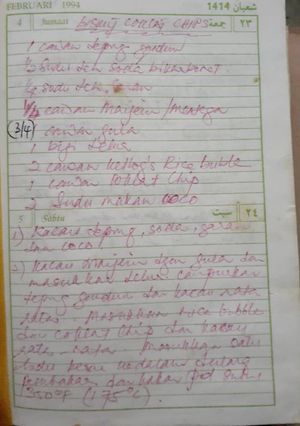 FEBRUARI 1994 شعبان 1414
4 Jumaat جمعة ٢٣
BISKUT COKLAT CHIPS
1 cawan tepung gandum
1/2 sudu teh soda bikarbonat
1/2 sudu teh garam
1/2 cawan Marjerin / Mentega
(3/4) cawan gula
1 biji telur
2 cawan Kellog's Rice bubble
1 cawan coklat chip
2 sudu makan coco
5 Sabtu سبت ٢٤
1) Kacau tepung, soda, garam
dan coco
2) Kacau marjerin dgn gula dan
masukkan telur campurkan
tepung gandum dan kacau rata
Masukkan rice bubble
dan coklat chip dan kacau
rata - rata. Masukkan satu
sudu kedalam dulang
pembakar dan bakar pd suhu
350°F (175°C)